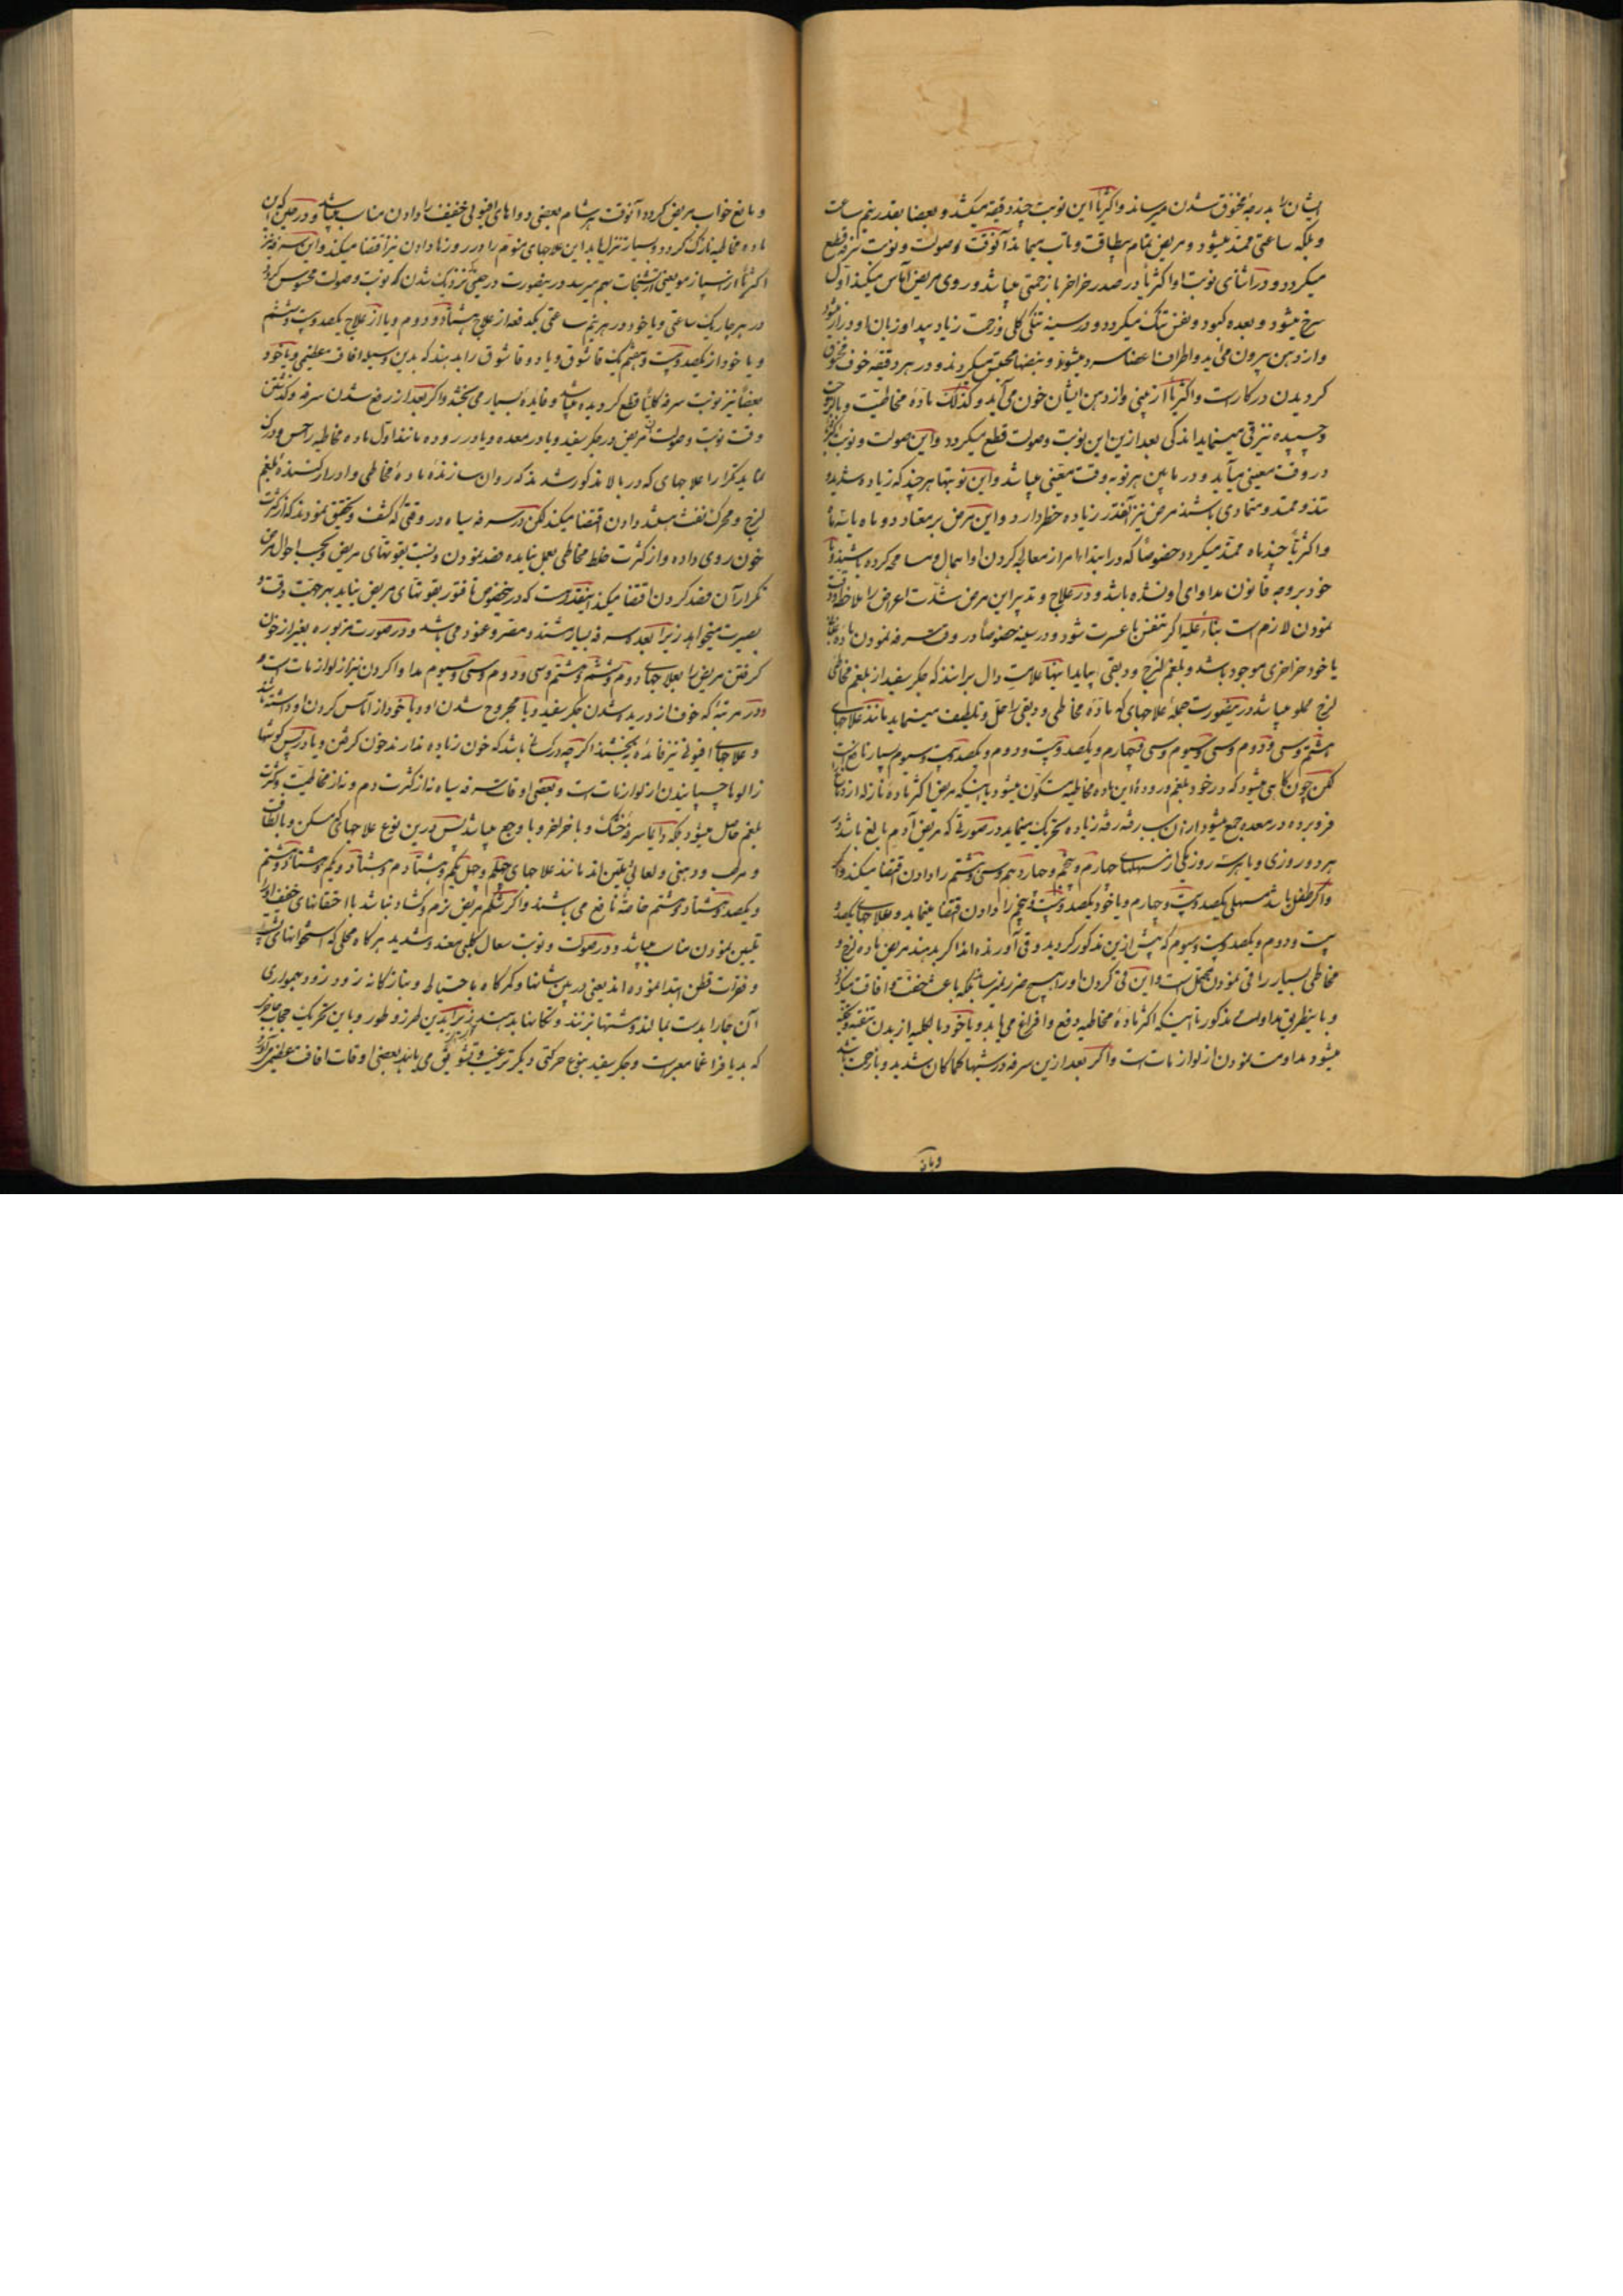 ایشان را بدرجهٔ مخنوق شدن میرساند و اکثریا این نوبت چند دقیقه میکشد و بعضا بقدر نیم ساعت
و بلکه ساعتی ممتد میشود و مریض تمام بیطاقت و بیتاب میماند آنوقت صولت و نوبت سرفه قطع
میکردد و در اثنای نوبت او اکثریا در صدر خراخر با زحمتی میباشد و روی مریض آماس میکند اول
سرخ میشود و بعده کبود و نفس تنک میکردد و در سینه تنکی کلی و زحمت زیاد پیدا و زبان او دراز میشود
و از دهن بیرون می آید و اطراف اعضا سرد میشود و نبضها محتبس میکردند و در هر دقیقه خوف مخنوق
کردیدن در کار است و اکثریا از بینی و از دهن ایشان خون می آید و کذلک مادهٔ مخاطیت و با لزوجت
و چسپیده نیز قی مینماید اندکی بعد ازین این نوبت و صولت قطع میکردد و این صولت و نوبت اکثریا
در وقت معینی میآید و در مابین هر نوبه وقت معینی میباشد و این نوبتها هر چند که زیاده شدید
تند و ممتد و متمادی باشند مرض نیز آنقدر زیاده خطر دارد و این مرض بر معتاد دو ماه یا سه ماه
و اکثریا چند ماه ممتد میکردد خصوصا که در ابتدا امر از معالجه کردن او اهمال و مسامحه کرده باشند و یا
خود بر وجه قانون مداوای او نشده باشد و در علاج و تدبیر این مرض شدت اعراض را ملاحظه و دقت
نمودن لازم است بناء علیه اکر تنفس با عسرت شود و در سینه خصوصا در وقت سرفه نمودن
یا خود خراخری موجود باشد و بلغم لزج و دبقی بیاید اینها علامت دال براند که جکر سفید از بلغم مخاطی
لزج مملو میباشد در ینصورت جمله علاجهای که مادهٔ مخاطی و دبقی را حل و تلطیف مینماید مانند علاجهای
هشتم و سی و دوم و سی و سیوم و سی و چهارم و یکصد و بیست و دوم و یکصد و بیست و سیوم بسیار نافع است
لکن چون کاهی میشود که در خود بلغم و رودهٔ این ماده مخاطیه متکون میشود یا اینکه مریض اکثر مادهٔ نازله از دماغ
فرو برده در معده جمع میشود از آن سبب رفته رفته زیاده تحریک مینماید در صورتی که مریض آدم بالغ باشد
هر دو روزی و یا هر سه روز یکی از مسهلهای چهارم و پنجم و چهاردهم و سی و هشتم را دادن اقتضا میکند
و اکر طفل باشد مسهل یکصد و بیست و چهارم و یا خود یکصد و بیست و پنجم را دادن اقتضا مینماید و علاجهای یکصد و
بیست و دوم و یکصد و بیست و سیوم که پیش ازین مذکور کردید و قی آورنده اند اکر بدهند مریض مادهٔ لزج و
مخاطی بسیار را قی نمودن محتمل است و این قی کردن او را هیچ ضرر نمیرساند بلکه باعث خفت و افاقت میکردد
و باینطریق مداوای مذکور تا اینکه اکثر مادهٔ مخاطیه دفع و افراغ می یابد و یا خود بالکلیه از بدن تنقیه
میشود مداومت نمودن از لوازمات است و اکر بعد ازین سرفه در شبها کما کان شدید و با زحمت باشد
و مانع
و مانع خواب مریض کردد آنوقت هر شام بعضی دواهای افیونی خفیف را دادن مناسب میباشد و در حین که این
مادهٔ مخاطیه نازک کردد و بسیار تنزل یابد این علاجهای منوم را در روز نا دادن نیز اقتضا میکند و این سرفه نیز
اکثریا از اسپازمو یعنی از تشنجات بهم میرسد در ینصورت در حین نزدیک شدن که نوبت و صولت محسوس کردد
در هر چاریک ساعتی و یا خود در هر نیم ساعتی یکدفعه از علاج هشتاد و دوم و یا از علاج یکصد و بیست و ششم
و یا خود از یکصد و بیست و هفتم یک قاشوق و یا دو قاشوق را بدهند که بدین وسیله افاقت عظیمی و یا خود
بعضا نیز نوبت سرفه کلیا قطع کردیده میباشد و فایدهٔ بسیار می بخشد و اکر بعد از رفع شدن سرفه و کذشتن
وقت نوبت و صولت آن مریض در جکر سفید و یا در معده و یا در روده مانند اول مادهٔ مخاطیه را حس و درک
نماید تکرارا علاجهای که در بالا مذکور شدند که روان سازندهٔ مادهٔ مخاطی و ادرار کنندهٔ بلغم
لزج و محرک نفث هستند دادن اقتضا میکند لکن در سرفه سیاه در وقتی که کشف و تحقیق نمودند که از کثرت
خون روی داده و از کثرت خلط مخاطی بعمل نیامده فصد نمودن و نسبت بقوتهای مریض و بحسب احوال مرض
تکرار آن فصد کردن اقتضا میکند اینقدر هست که در ینخصوص تا فتور بقوتهای مریض نیاید بهر جهت دقت و
بصیرت میخواهد زیرا بعده سرفه بسیار شدید و مضر و عنود می باشد و در صورت مزبوره بغیر از خون
کرفتن مریض را بعلاجهای دوم و ششم و هشتم و سی و دوم و سی و سیوم مداوا کردن نیز از لوازمات است و
در مرتبهٔ که خوف از دریده شدن جکر سفید و یا مجروح شدن او و یا خود از آماس کردن او داشته باشند
و علاجهای افیونی نیز فائده میبخشند اکر چه در کسانی باشد که خون زیاده ندارند خون کرفتن و یا در پس کوشها
زالو با چسپانیدن از لوازمات است و بعضی اوقات سرفه سیاه نه از کثرت دم و نه از مخاطیت و کثرت
بلغم حاصل میشود بلکه دایما سرفه خشک و با خراخر و با وجع میباشد پس درین نوع علاجهای که مسکن و با لطافت
و مرطب و دهنی و لعابی و ملین اند مانند علاجهای چهلم و چهل و یکم و هشتاد م و هشتاد و یکم و هشتاد و هشتم
و یکصد و هشتاد و هشتم خاصة نافع می باشند و اکر شکم مریض نرم و کشاد نباشد با احتقانهای خفیف او را
تلیین نمودن مناسب میباشد و در صولت و نوبت سعال کلبی معند و شدید هر کاه محلی که استخوانهای پشت
و فقرات قطن ابتدا نموده اند یعنی در بین شانها و کمرکاه با احتیاط و بنازکانه زود زود بهمواری
آن جا را بدست بمالند و مشتها بزنند و تکانها بدهند زیرا بدین طرز و طور و باین تحریک حجاب حاجز
که بدیافراغما معبر است و جکر سفید بنوع حرکتی دیکر ترغیب و تشویق می یابند بعضی اوقات افاقت عظیمی می آورد